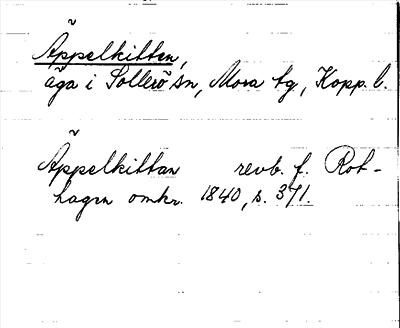 Äppelkittan,
äga i Sollerö sn, Mora tg, Kopp. l.
Äppelkittan revb. f. Rot-
hagen omkr. 1840, s. 371.